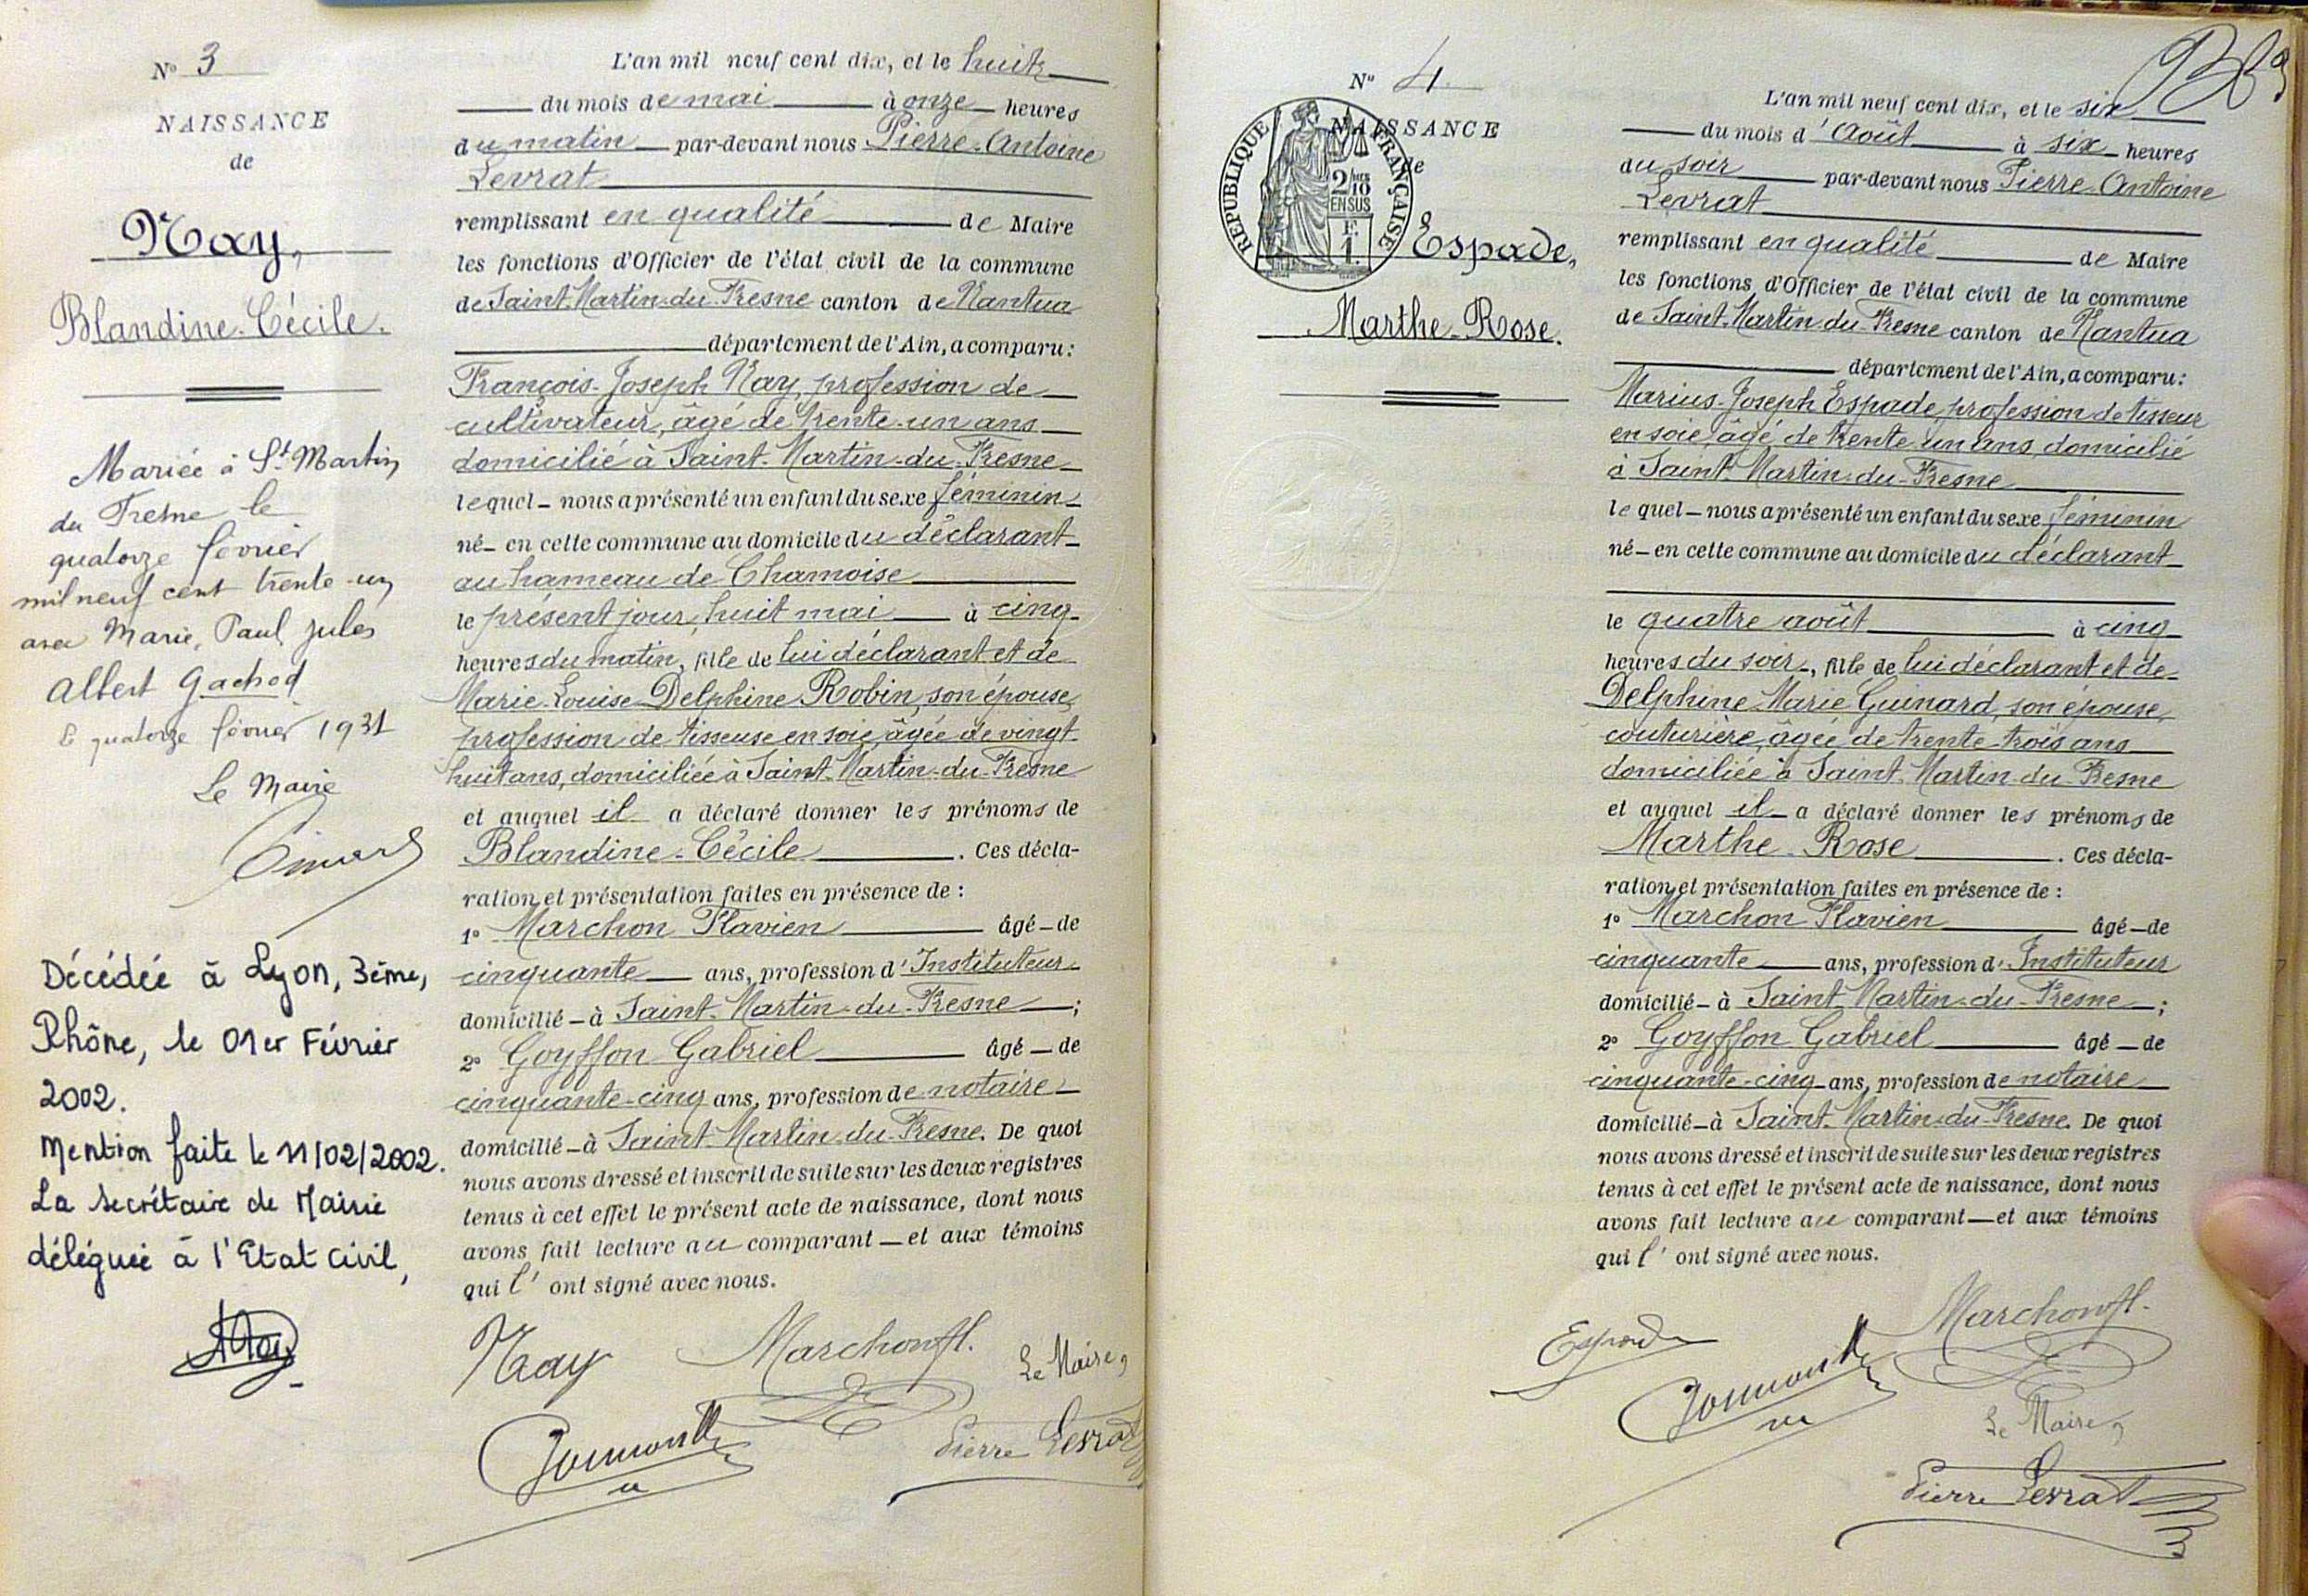 N° 3
NAISSANCE
de
Nay,
Blandine-Cécile.
Mariée à St Martin
du Fresne le
quatorze février
mil neuf cent trente-un
avec Marie, Paul Jules
Albert Gachod
le quatorze février 1931
Le Maire
Décédée à Lyon, 3ème,
Rhône, le 01er Février
2002.
Mention faite le 11/02/2002.
La Secrétaire de Mairie
déléguée à l'Etat civil,
L'an mil neuf cent dix, et le huit
du mois de mai à onze heures
du matin par-devant nous Pierre-Antoine
Levrat
remplissant en qualité de Maire
les fonctions d'Officier de l'état civil de la commune
de Saint-Martin-du-Fresne canton de Nantua
département de l'Ain, a comparu:
François-Joseph Nay, profession de
cultivateur, âgé de trente-un ans
domicilié à Saint-Martin-du-Fresne
lequel nous a présenté un enfant du sexe féminin
né en cette commune au domicile du déclarant
au hameau de Chamoise
le présent jour, huit mai à cinq
heures du matin, fille de lui déclarant et de
Marie-Louise-Delphine Robin, son épouse,
profession de tisseuse en soie, âgée de vingt-
huit ans, domiciliée à Saint-Martin-du-Fresne
et auquel il a déclaré donner les prénoms de
Blandine-Cécile. Ces décla-
ration et présentation faites en présence de :
1° Marchon Flavien âgé de
cinquante ans, profession d'Instituteur
domicilié à Saint-Martin-du-Fresne ;
2° Goyffon Gabriel âgé de
cinquante-cinq ans, profession de notaire
domicilié à Saint-Martin-du-Fresne. De quoi
nous avons dressé et inscrit de suite sur les deux registres
tenus à cet effet le présent acte de naissance, dont nous
avons fait lecture au comparant et aux témoins
qui l'ont signé avec nous.
Nay Marchon fl.
Le Maire,
Pierre Levrat
N° 4
NAISSANCE
de
RÉPUBLIQUE FRANÇAISE
2/10
EN SUS
F.
1.
Espade,
Marthe-Rose.
L'an mil neuf cent dix, et le six
du mois d'Août à six heures
du soir par-devant nous Pierre-Antoine
Levrat
remplissant en qualité de Maire
les fonctions d'Officier de l'état civil de la commune
de Saint-Martin-du-Fresne canton de Nantua
département de l'Ain, a comparu:
Marius-Joseph Espade, profession de tisseur
en soie, âgé de trente-un ans, domicilié
à Saint-Martin-du-Fresne
le quel nous a présenté un enfant du sexe féminin
né en cette commune au domicile du déclarant
le quatre août à cinq
heures du soir, fille de lui déclarant et de
Delphine-Marie Guinard, son épouse,
couturière, âgée de trente-trois ans
domiciliée à Saint-Martin-du-Fresne
et auquel il a déclaré donner les prénoms de
Marthe-Rose. Ces décla-
ration et présentation faites en présence de :
1° Marchon Flavien âgé de
cinquante ans, profession d'Instituteur
domicilié à Saint-Martin-du-Fresne ;
2° Goyffon Gabriel âgé de
cinquante-cinq ans, profession de notaire
domicilié à Saint-Martin-du-Fresne. De quoi
nous avons dressé et inscrit de suite sur les deux registres
tenus à cet effet le présent acte de naissance, dont nous
avons fait lecture au comparant et aux témoins
qui l'ont signé avec nous.
Espade Marchon fl.
Le Maire,
Pierre Levrat